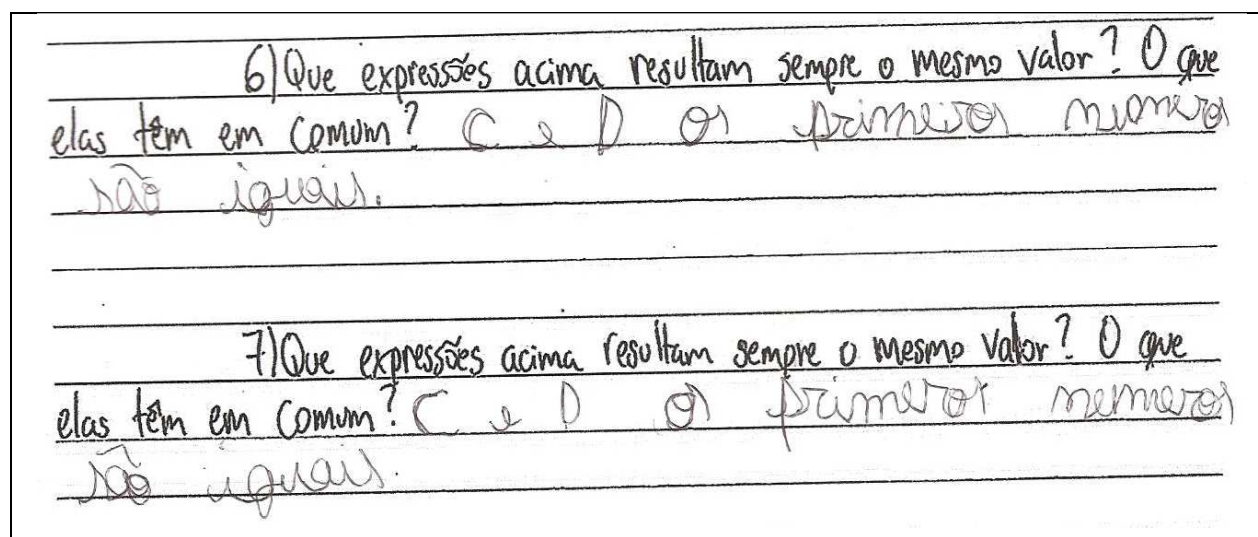 6) Que expressões acima resultam sempre o mesmo valor? O que
elas têm em comum? C e D os primeiros numeros
são iguais.
7) Que expressões acima resultam sempre o mesmo valor? O que
elas têm em comum? C e D os primeros numeros
são iguais.